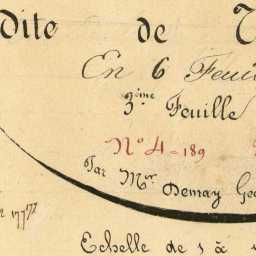 dite de
En 6 Feui
3ème Feuille
No 4 - 189
Par Mr Demay Geo
Echelle de 1 à